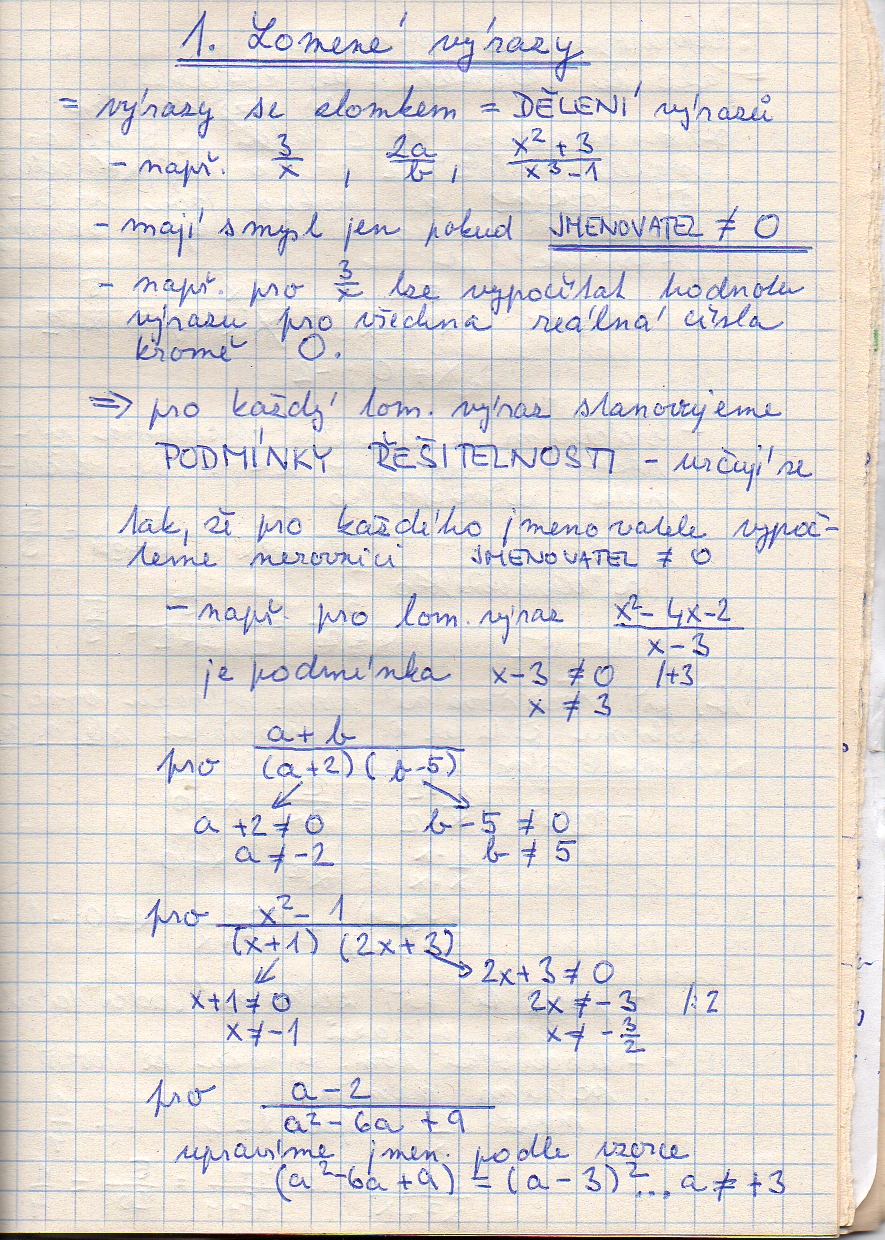 1. Lomené výrazy
= výrazy se zlomkem = DĚLENÍ výrazů
- např. 3/x , 2a/b , (x² + 3)/(x³ - 1)
- mají smysl jen pokud JMENOVATEL ≠ 0
- např. pro 3/x lze vypočítat hodnotu
výrazu pro všechna reálná čísla
kromě 0.
⇒ pro každý lom. výraz stanovujeme
PODMÍNKY ŘEŠITELNOSTI - určují se
tak, že pro každého jmenovatele vypoč-
teme nerovnici JMENOVATEL ≠ 0
- např. pro lom. výraz (x² - 4x - 2)/(x - 3)
je podmínka x - 3 ≠ 0 /+3
x ≠ 3
pro (a + b)/((a + 2)(b - 5))
a + 2 ≠ 0 b - 5 ≠ 0
a ≠ -2 b ≠ 5
pro (x² - 1)/((x + 1)(2x + 3))
2x + 3 ≠ 0
x + 1 ≠ 0 2x ≠ -3 /:2
x ≠ -1 x ≠ -3/2
pro (a - 2)/(a² - 6a + 9)
upravíme jmen. podle vzorce
(a² - 6a + 9) = (a - 3)² ... a ≠ +3